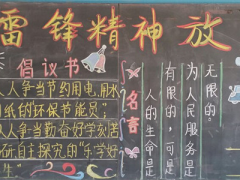 雷锋精神放
倡议书
人人争当节约用电,用水
用纸的环保节能员;
人人争当勤奋好学刻苦
钻研,自主探究的“乐学好
生”
名言
人的生命是
有限的,可是
为人民服务是
无限的